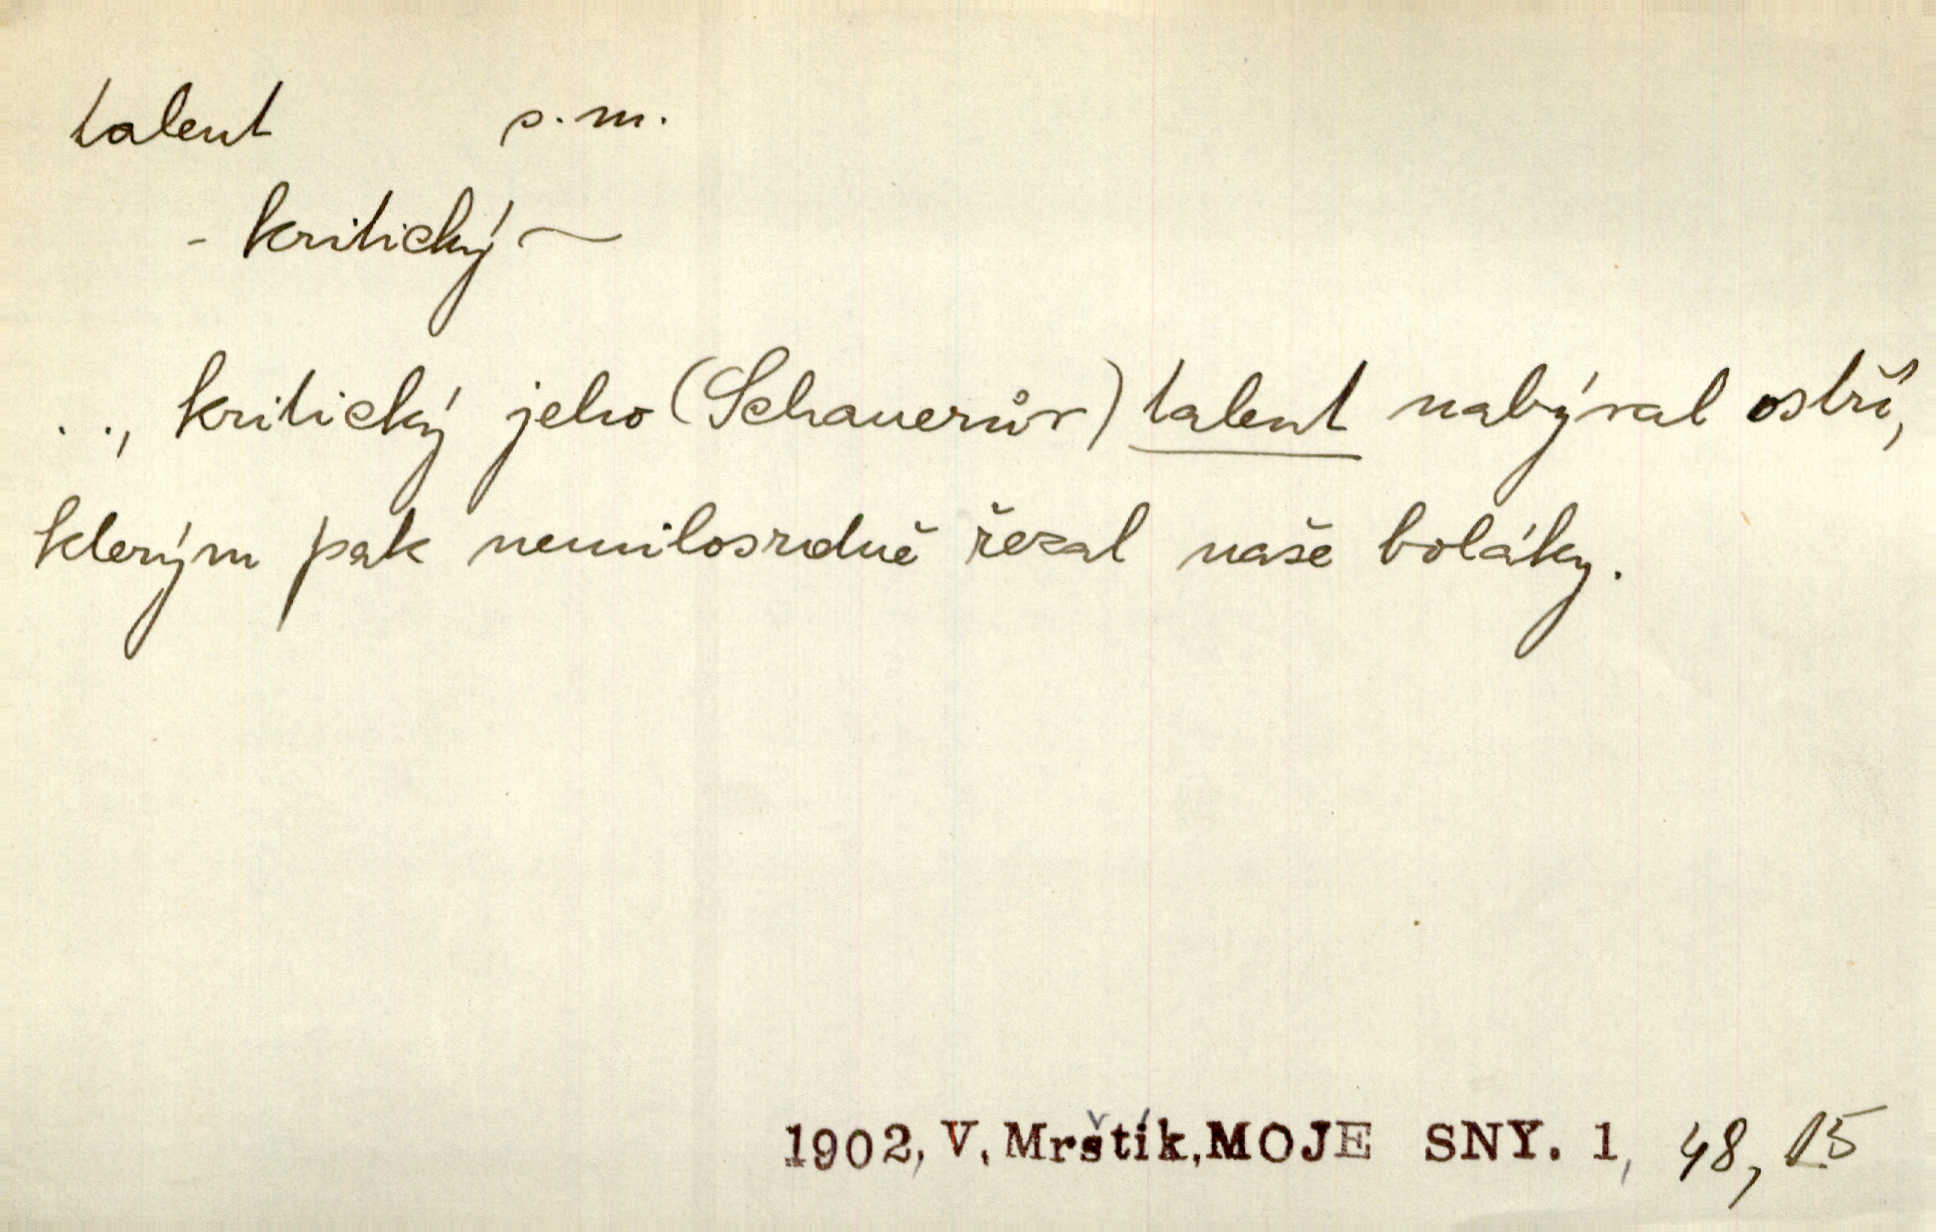 talent s.m.
- kritický ~
..., kritický jeho (Schauerův) talent nabýval ostří,
kterým pak nemilosrdně řezal naše boláky.
1902, V. Mrštík, MOJE SNY. 1, 48, 15